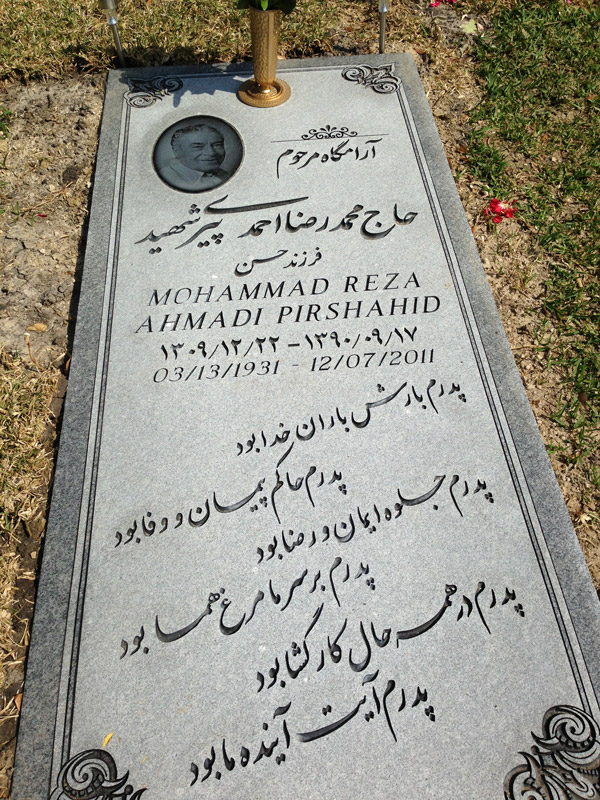 آرامگاه مرحوم
حاج محمد رضا احمدی پیرشهید
فرزند حسن
MOHAMMAD REZA
AHMADI PIRSHAHID
۱۳۰۹/۱۲/۲۲ – ۱۳۹۰/۰۹/۱۷
03/13/1931 - 12/07/2011
پدرم بارش باران خدا بود
پدرم حاکم پیمان و وفا بود
پدرم جلوه ایمان و رضا بود
پدرم بر سر ما مرغ هما بود
پدرم در همه حال کارگشا بود
پدرم آیت آینده ما بود